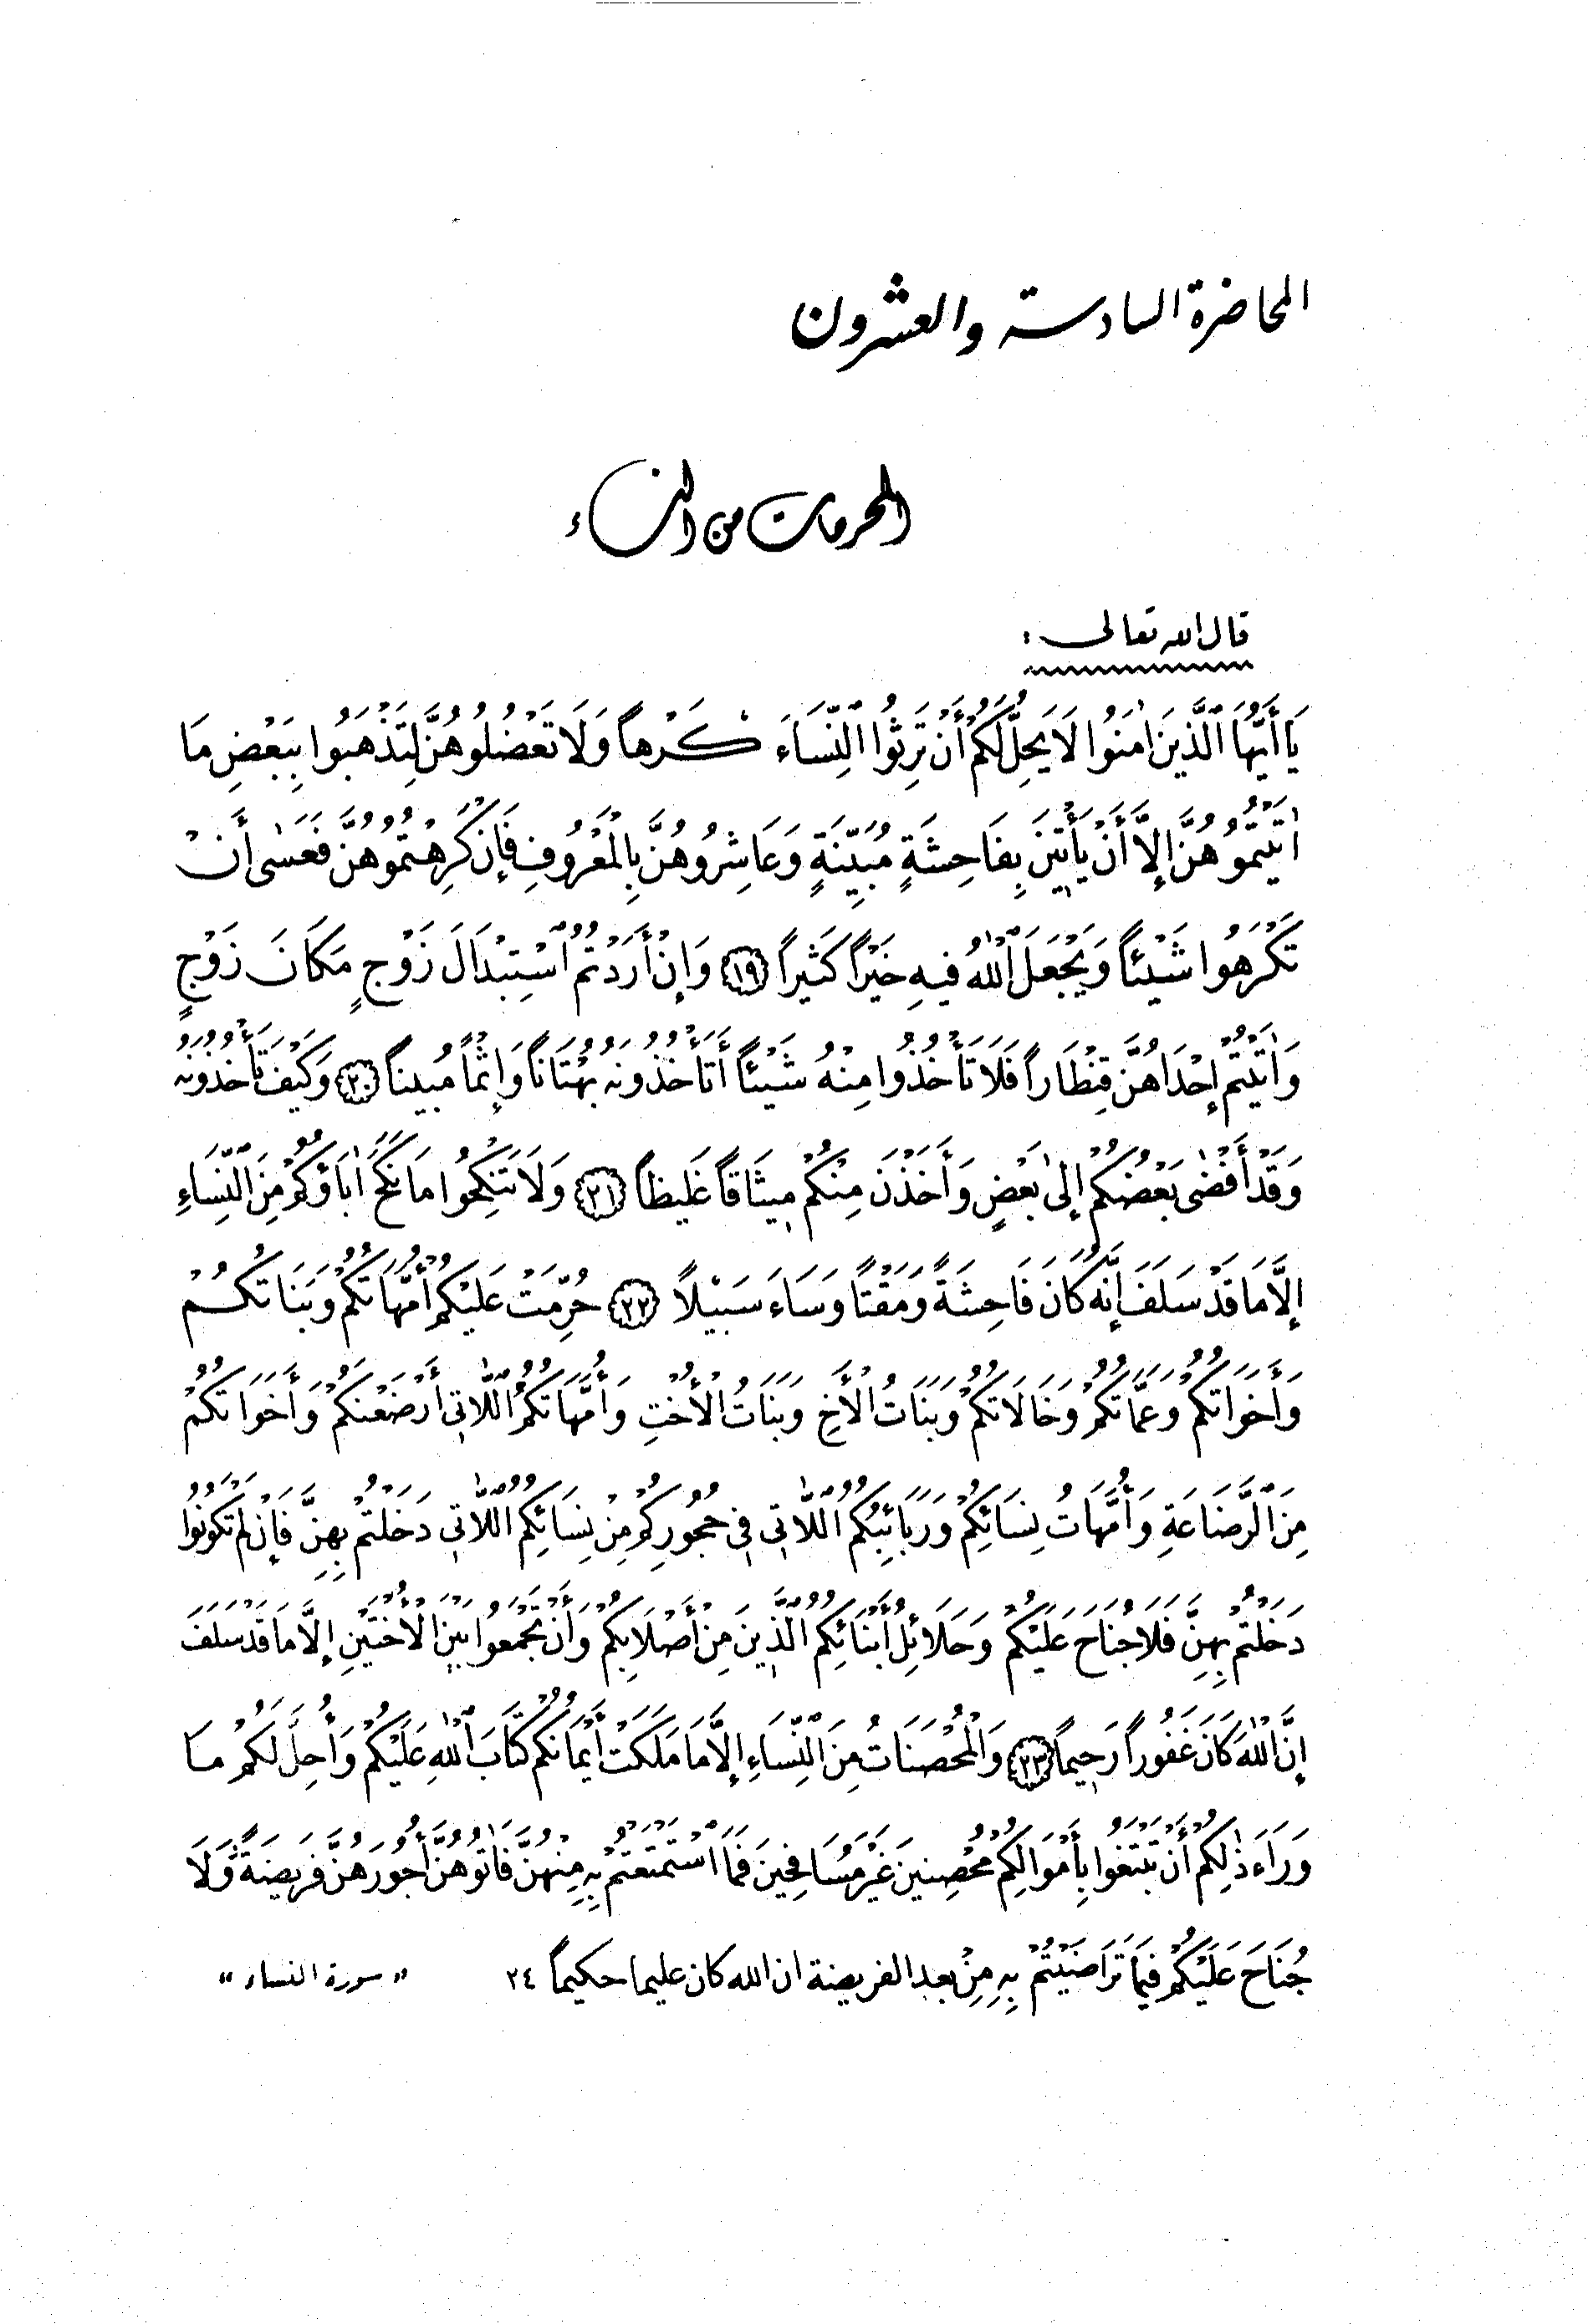 المحاضرة السادسة والعشرون
المحرمات من النساء
قال الله تعالى :
يَا أَيُّهَا ٱلَّذِينَ اٰمَنُوا لَا يَحِلُّ لَكُمْ أَنْ تَرِثُوا ٱلنِّسَاءَ كَرْهاً وَلَا تَعْضُلُوهُنَّ لِتَذْهَبُوا بِبَعْضِ مَا
اٰتَيْتُمُوهُنَّ إِلَّا أَنْ يَأْتِينَ بِفَاحِشَةٍ مُبَيِّنَةٍ وَعَاشِرُوهُنَّ بِالْمَعْرُوفِ فَإِنْ كَرِهْتُمُوهُنَّ فَعَسٰى أَنْ
تَكْرَهُوا شَيْئاً وَيَجْعَلَ ٱللّٰهُ فِيهِ خَيْراً كَثِيراً ﴿١٩﴾ وَإِنْ أَرَدْتُمُ ٱسْتِبْدَالَ زَوْجٍ مَكَانَ زَوْجٍ
وَاٰتَيْتُمْ إِحْدَاهُنَّ قِنْطَاراً فَلَا تَأْخُذُوا مِنْهُ شَيْئاً أَتَأْخُذُونَهُ بُهْتَاناً وَإِثْماً مُبِيناً ﴿٢٠﴾ وَكَيْفَ تَأْخُذُونَهُ
وَقَدْ أَفْضٰى بَعْضُكُمْ إِلٰى بَعْضٍ وَأَخَذْنَ مِنْكُمْ مِيثَاقاً غَلِيظاً ﴿٢١﴾ وَلَا تَنْكِحُوا مَا نَكَحَ اٰبَاؤُكُمْ مِنَ ٱلنِّسَاءِ
إِلَّا مَا قَدْ سَلَفَ إِنَّهُ كَانَ فَاحِشَةً وَمَقْتًا وَسَاءَ سَبِيْلاً ﴿٢٢﴾ حُرِّمَتْ عَلَيْكُمْ أُمَّهَاتُكُمْ وَبَنَاتُكُمْ
وَأَخَوَاتُكُمْ وَعَمَّاتُكُمْ وَخَالَاتُكُمْ وَبَنَاتُ الْأَخِ وَبَنَاتُ الْأُخْتِ وَأُمَّهَاتُكُمُ ٱللَّاتِي أَرْضَعْنَكُمْ وَأَخَوَاتُكُمْ
مِنَ ٱلرَّضَاعَةِ وَأُمَّهَاتُ نِسَائِكُمْ وَرَبَائِبُكُمُ ٱللَّاتِي فِي حُجُورِكُمْ مِنْ نِسَائِكُمُ ٱللَّاتِي دَخَلْتُمْ بِهِنَّ فَإِنْ لَمْ تَكُونُوا
دَخَلْتُمْ بِهِنَّ فَلَا جُنَاحَ عَلَيْكُمْ وَحَلَائِلُ أَبْنَائِكُمُ ٱلَّذِينَ مِنْ أَصْلَابِكُمْ وَأَنْ تَجْمَعُوا بَيْنَ الْأُخْتَيْنِ إِلَّا مَا قَدْ سَلَفَ
إِنَّ ٱللّٰهَ كَانَ غَفُوراً رَحِيماً ﴿٢٣﴾ وَالْمُحْصَنَاتُ مِنَ ٱلنِّسَاءِ إِلَّا مَا مَلَكَتْ أَيْمَانُكُمْ كِتَابَ ٱللّٰهِ عَلَيْكُمْ وَأُحِلَّ لَكُمْ مَا
وَرَاءَ ذٰلِكُمْ أَنْ تَبْتَغُوا بِأَمْوَالِكُمْ مُحْصِنِينَ غَيْرَ مُسَافِحِينَ فَمَا ٱسْتَمْتَعْتُمْ بِهِ مِنْهُنَّ فَاٰتُوهُنَّ أُجُورَهُنَّ فَرِيضَةً وَلَا
جُنَاحَ عَلَيْكُمْ فِيمَا تَرَاضَيْتُمْ بِهِ مِنْ بعد الفريضة ان الله كان عليما حكيماً ٢٤ « سورة النساء »